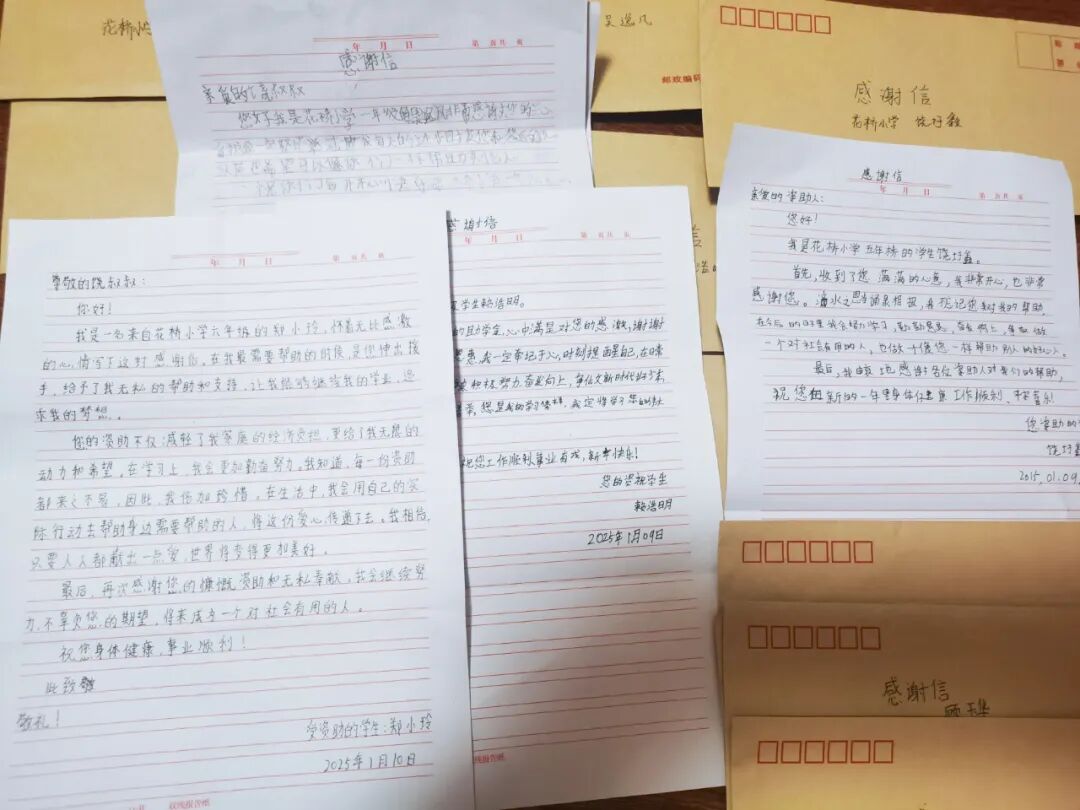 花桥小
吴逸凡
邮政编码
感谢信
花桥小学 饶圩毅
年 月 日
第 页 共 页
感谢信
您好我是花桥小学一年级
年 月 日
第 页 共 页
尊敬的饶叔叔：
您好！
我是一名来自花桥小学六年级的郑小玲，怀着无比感激
的心情写下这封感谢信。在我最需要帮助的时候，是您伸出援
手，给予了我无私的帮助和支持，让我能够继续我的学业，追
求我的梦想。
您的资助不仅减轻了我家庭的经济负担，更给了我无限的
动力和希望。在学习上，我会更加勤奋努力。我知道，每一份资助
都来之不易，因此，我倍加珍惜，在生活中，我会用自己的实
际行动去帮助身边需要帮助的人，将这份爱心传递下去。我相信，
只要人人都献出一点爱，世界将变得更加美好。
最后，再次感谢您的慷慨资助和无私奉献，我会继续努
力，不辜负您的期望，将来成为一个对社会有用的人。
祝您身体健康，事业顺利！
此致
敬礼！
受资助的学生：郑小玲
2025年1月10日
双线报告纸
感谢信
年 月 日
第 页 共 页
学生赖浩明。
的助学金，心中满是对您的感激，谢谢
我一定牢记于心，时刻提醒自己，在日常
积极努力，奋发向上，争做新时代好少年
您是我的学习榜样，我定将学习您的
祝您工作顺利，事业有成，新年快乐！
您的资助学生
赖浩明
2025年1月09日
线报告纸
感谢信
年 月 日
第 页 共 页
亲爱的资助人：
您好！
我是花桥小学五年级的学生饶圩
首先，收到了您满满的心意，我非常开心，也非常
感谢您。滴水之恩当涌泉相报，我会记您对我的帮助，
在今后的日子里我会努力学习，勤勤恳恳，奋发向上，争取做
一个对社会有用的人，也估计像您一样帮助别人的好心人。
最后，我由衷地感谢各位资助人对我们的帮助，
祝您在新的一年里身体健康，工作顺利，平安喜乐！
您资助的
饶圩
2015.01.09
感谢信